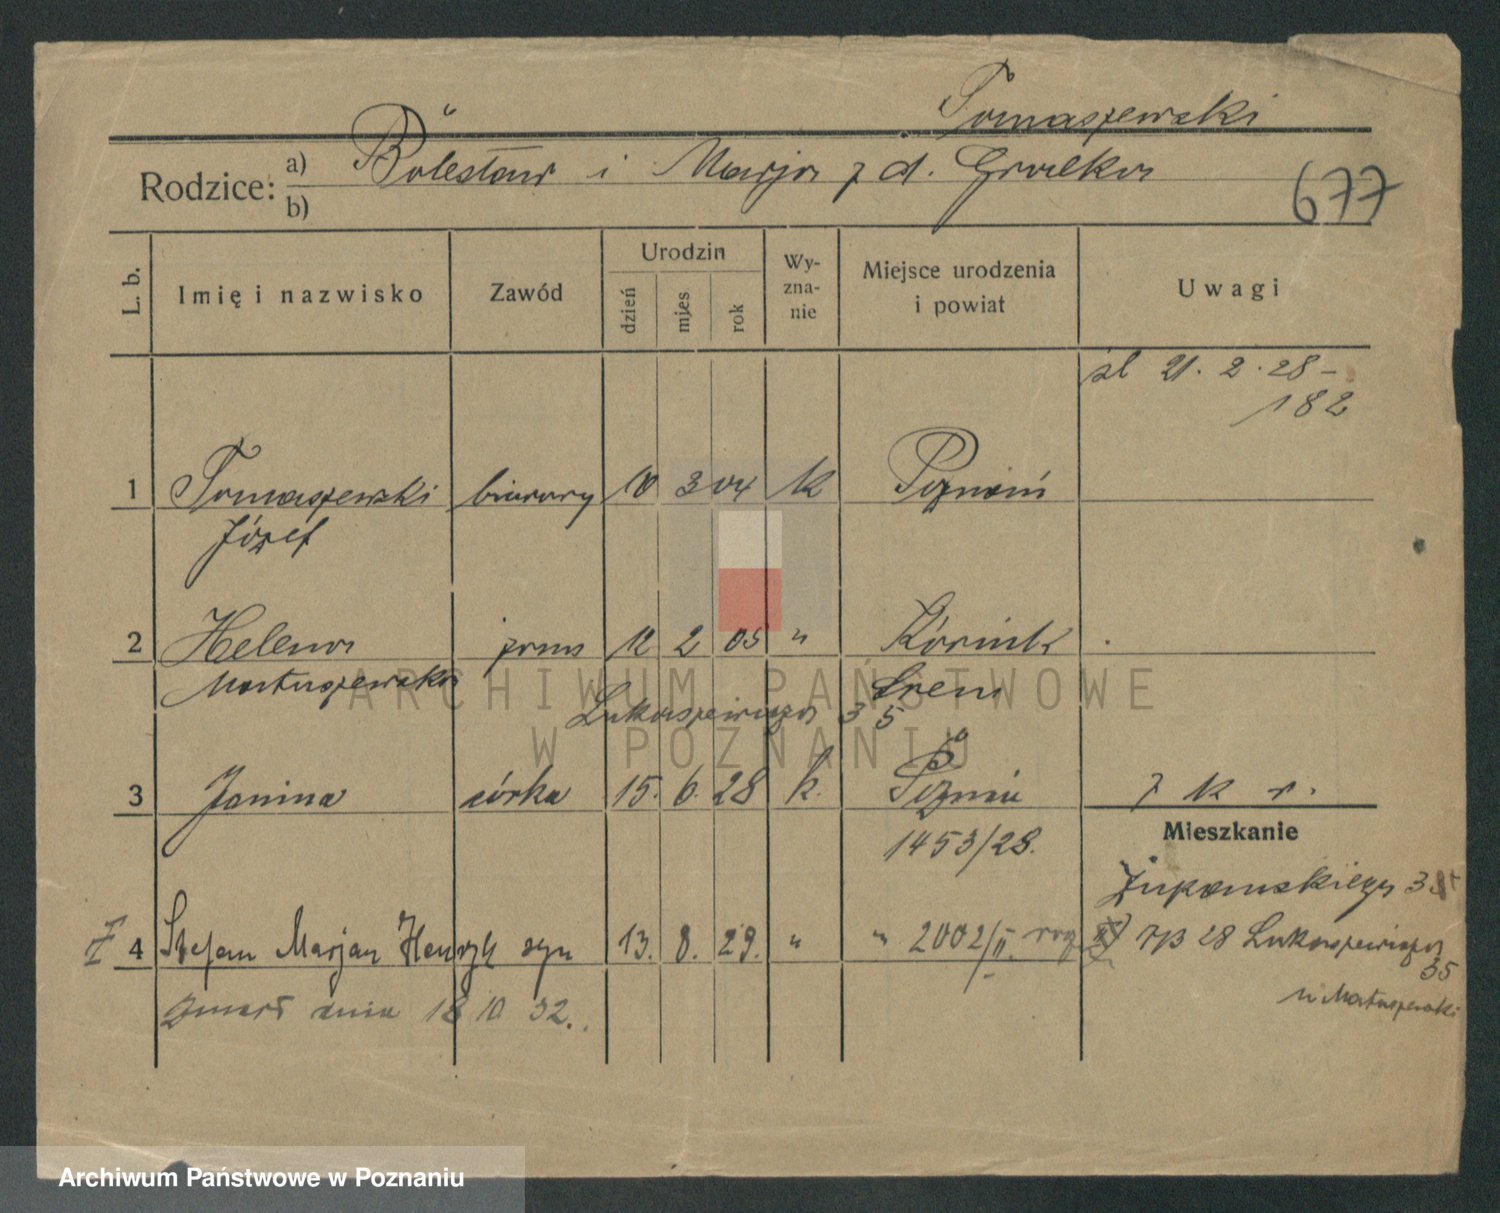 Tomaszewski
Rodzice: a) Bolesław i Marja z d. Grolka
b)
677
L. b. Imię i nazwisko Zawód Urodzin dzień mies rok Wy-zna-nie Miejsce urodzenia i powiat Uwagi
śl 21. 2. 28 –
182
1 Tomaszewski biurowy 10 3 04 k Poznań
Józef
2 Helena żona 12 2 05 " Kórnik
Matuszewska Śrem
Łukaszewicza 35
3 Janina córka 15. 6. 28 k. Poznań z k r.
1453/28.
Mieszkanie
4 Stefan Marjan Henryk syn 13. 8. 29. " " 2002/II.
zmarł dnia 18 10 32.
7/3 28 Łukaszewicza
35
u Matuszewski
ARCHIWUM PAŃSTWOWE
W POZNANIU
Archiwum Państwowe w Poznaniu